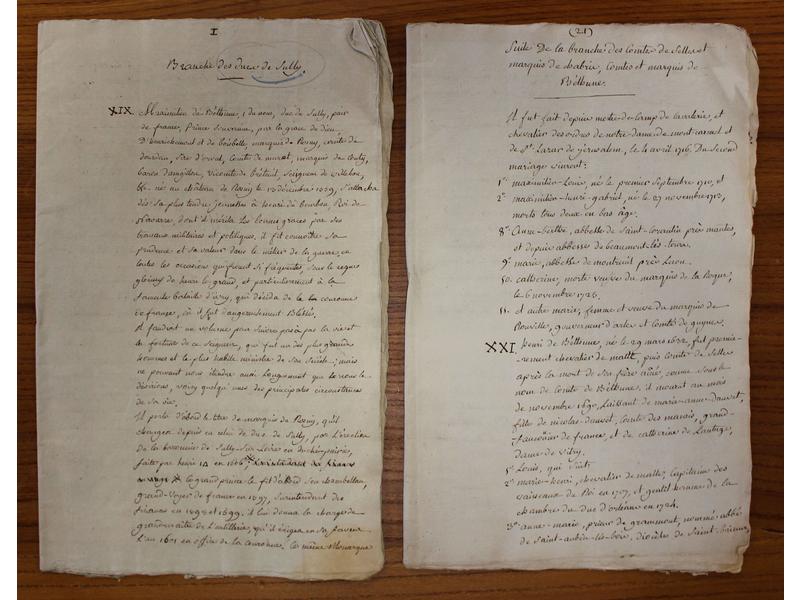 I
Branche des ducs de Sully.
XIX. Maximilien de Béthune, 1 du nom, duc de Sully, pair
de france, Prince Souverain, par la grace de dieu,
D'henrichemont et de boisbelle, marquis de Rosny, comte de
dourdan, Sire d'orval, Comte de muret, marquis de Conty,
baron d'angillon, vicomte de breteuil, Seigneur de villebon,
&c. né au château de Rosny le 13 décembre 1559, s'attacha
dès sa plus tendre jeunesse à henri de bourbon, Roi de
Navarre, dont il mérita les bonnes graces par ses
travaux militaires et politiques. il fit connoître sa
prudence et sa valeur dans le métier de la guerre, en
toutes les occasions qui furent si fréquentes, sous le regne
glorieux de henri le grand, et particulièrement à la
fameuse bataille d'ivry, qui décida de la couronne
de france, où il fut dangereusement blessé.
il faudroit un volume pour suivre pas à pas la vie et
la fortune de ce Seigneur, qui fut un des plus grands
hommes et le plus habile ministre de son Siècle; mais
ne pouvant nous étendre aussi longuement que nous le
désirions, voicy quelques unes des principales circonstances
de sa vie.
il porta d'abord le titre de marquis de Rosny, qu'il
changea depuis en celui de duc de Sully, par l'érection
de la baronnie de Sully-sur-Loire en duché-pairie,
faite par henri IV en 1606,
le grand prince le fit d'abord Son chambellan,
grand-voyer de france en 1597, Surintendant des
finances en 1598 et 1599; il lui donna la charge de
grand-maître de l'artillerie, qu'il érigea en sa faveur
l'an 1601 en office de la couronne. Ce même Monarque
(21)
Suite De la branche des Comtes de Selles et
marquis de chabris, Comtes et marquis de
Béthune.
Il fut fait depuis mestre de camp de cavalerie, et
chevalier des ordres de notre-dame de mont-carmel et
de St. Lazar de jerusalem, le 4 avril 1716. Du second
mariage vinrent:
1° maximilien-Louis, né le premier Septembre 1710, et
2° maximilien-henri-gabriel, né le 27 novembre 1713,
morts tous deux en bas âge.
8° Anne-berthe, abbesse de Saint-Corantin près mantes,
et depuis abbesse de beaumont-lès-tours.
9° marie, abbesse de montreuil près Laon.
10. catherine, morte veuve du marquis de la Roque,
le 6 novembre 1725.
11. et autre marie, femme et veuve du marquis de
Rouville, gouverneur d'ardres et Comté de guynes.
XXI. henri de Béthune, né le 29 mars 1632, fut premie-
rement chevalier de malte, puis comte de Selles
après la mort de son frère aîné, connu sous le
nom de Comte de Béthune. il mourut au mois
de novembre 1690, laissant de marie-anne-dauvet,
fille de nicolas-dauvet, Comte des marais, grand-
fauconier de france, et de catherine de Lantage,
dame de vitry.
1° Louis, qui Suit.
2° marie-henri, chevalier de malte, Capitaine des
vaisseaux du Roi en 1707, et gentil homme de la
chambre du duc d'orléans en 1724.
3° anne-marie, prieur de grammont, nommé abbé
de Saint-aubin-lès-bois, diocèse de Saint-brieux,